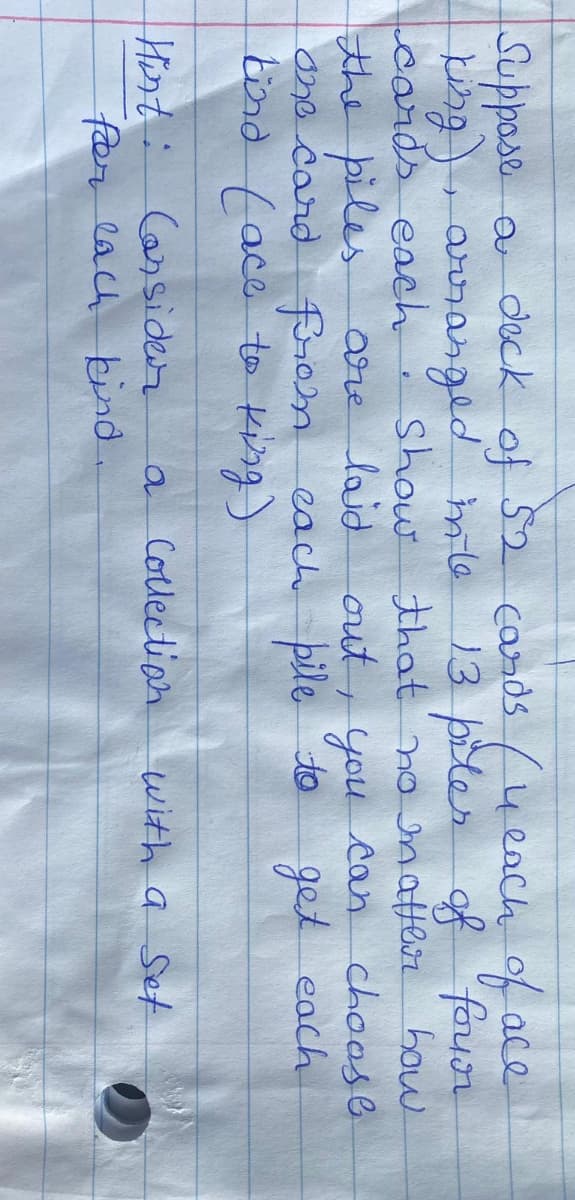 Suppose a deck of 52 cards (4 each of ace
king), arranged into 13 piles of four
cards each. Show that no matter how
the piles are laid out, you can choose
one card from each pile to get each
kind (ace to king)
Hint: Consider a Collection with a Set
for each kind.